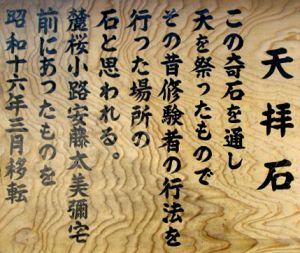 天拝石
この奇石を通し
天を祭ったもので
その昔修験者の行法を
行った場所の
石と思われる。
麓桜小路安藤太美彌宅
前にあったものを
昭和十六年三月移転